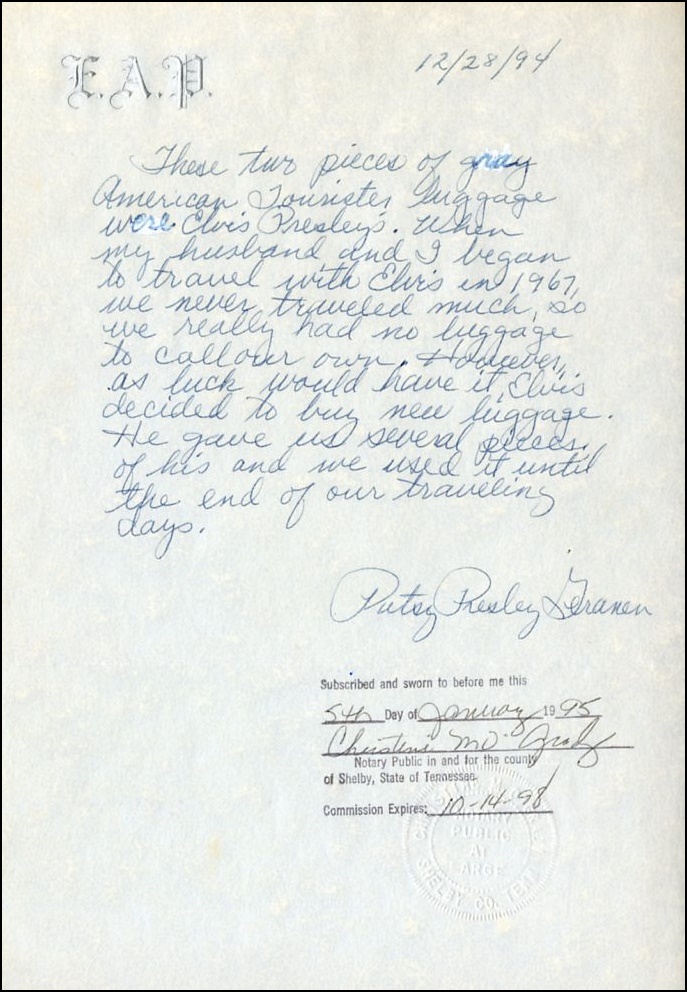 E.A.P.
12/28/94
These two pieces of gray
American Tourister luggage
were Elvis Presley's. When
my husband and I began
to travel with Elvis in 1967,
we never traveled much, so
we really had no luggage
to call our own. However,
as luck would have it, Elvis
decided to buy new luggage.
He gave us several pieces
of his and we used it until
the end of our traveling
days.
Patsy Presley Geranen
Subscribed and sworn to before me this
5th Day of January 1995
Christine
Notary Public in and for the county
of Shelby, State of Tennessee.
Commission Expires: 10-14-98
NOTARY
PUBLIC
AT
LARGE
SHELBY CO. TENN.